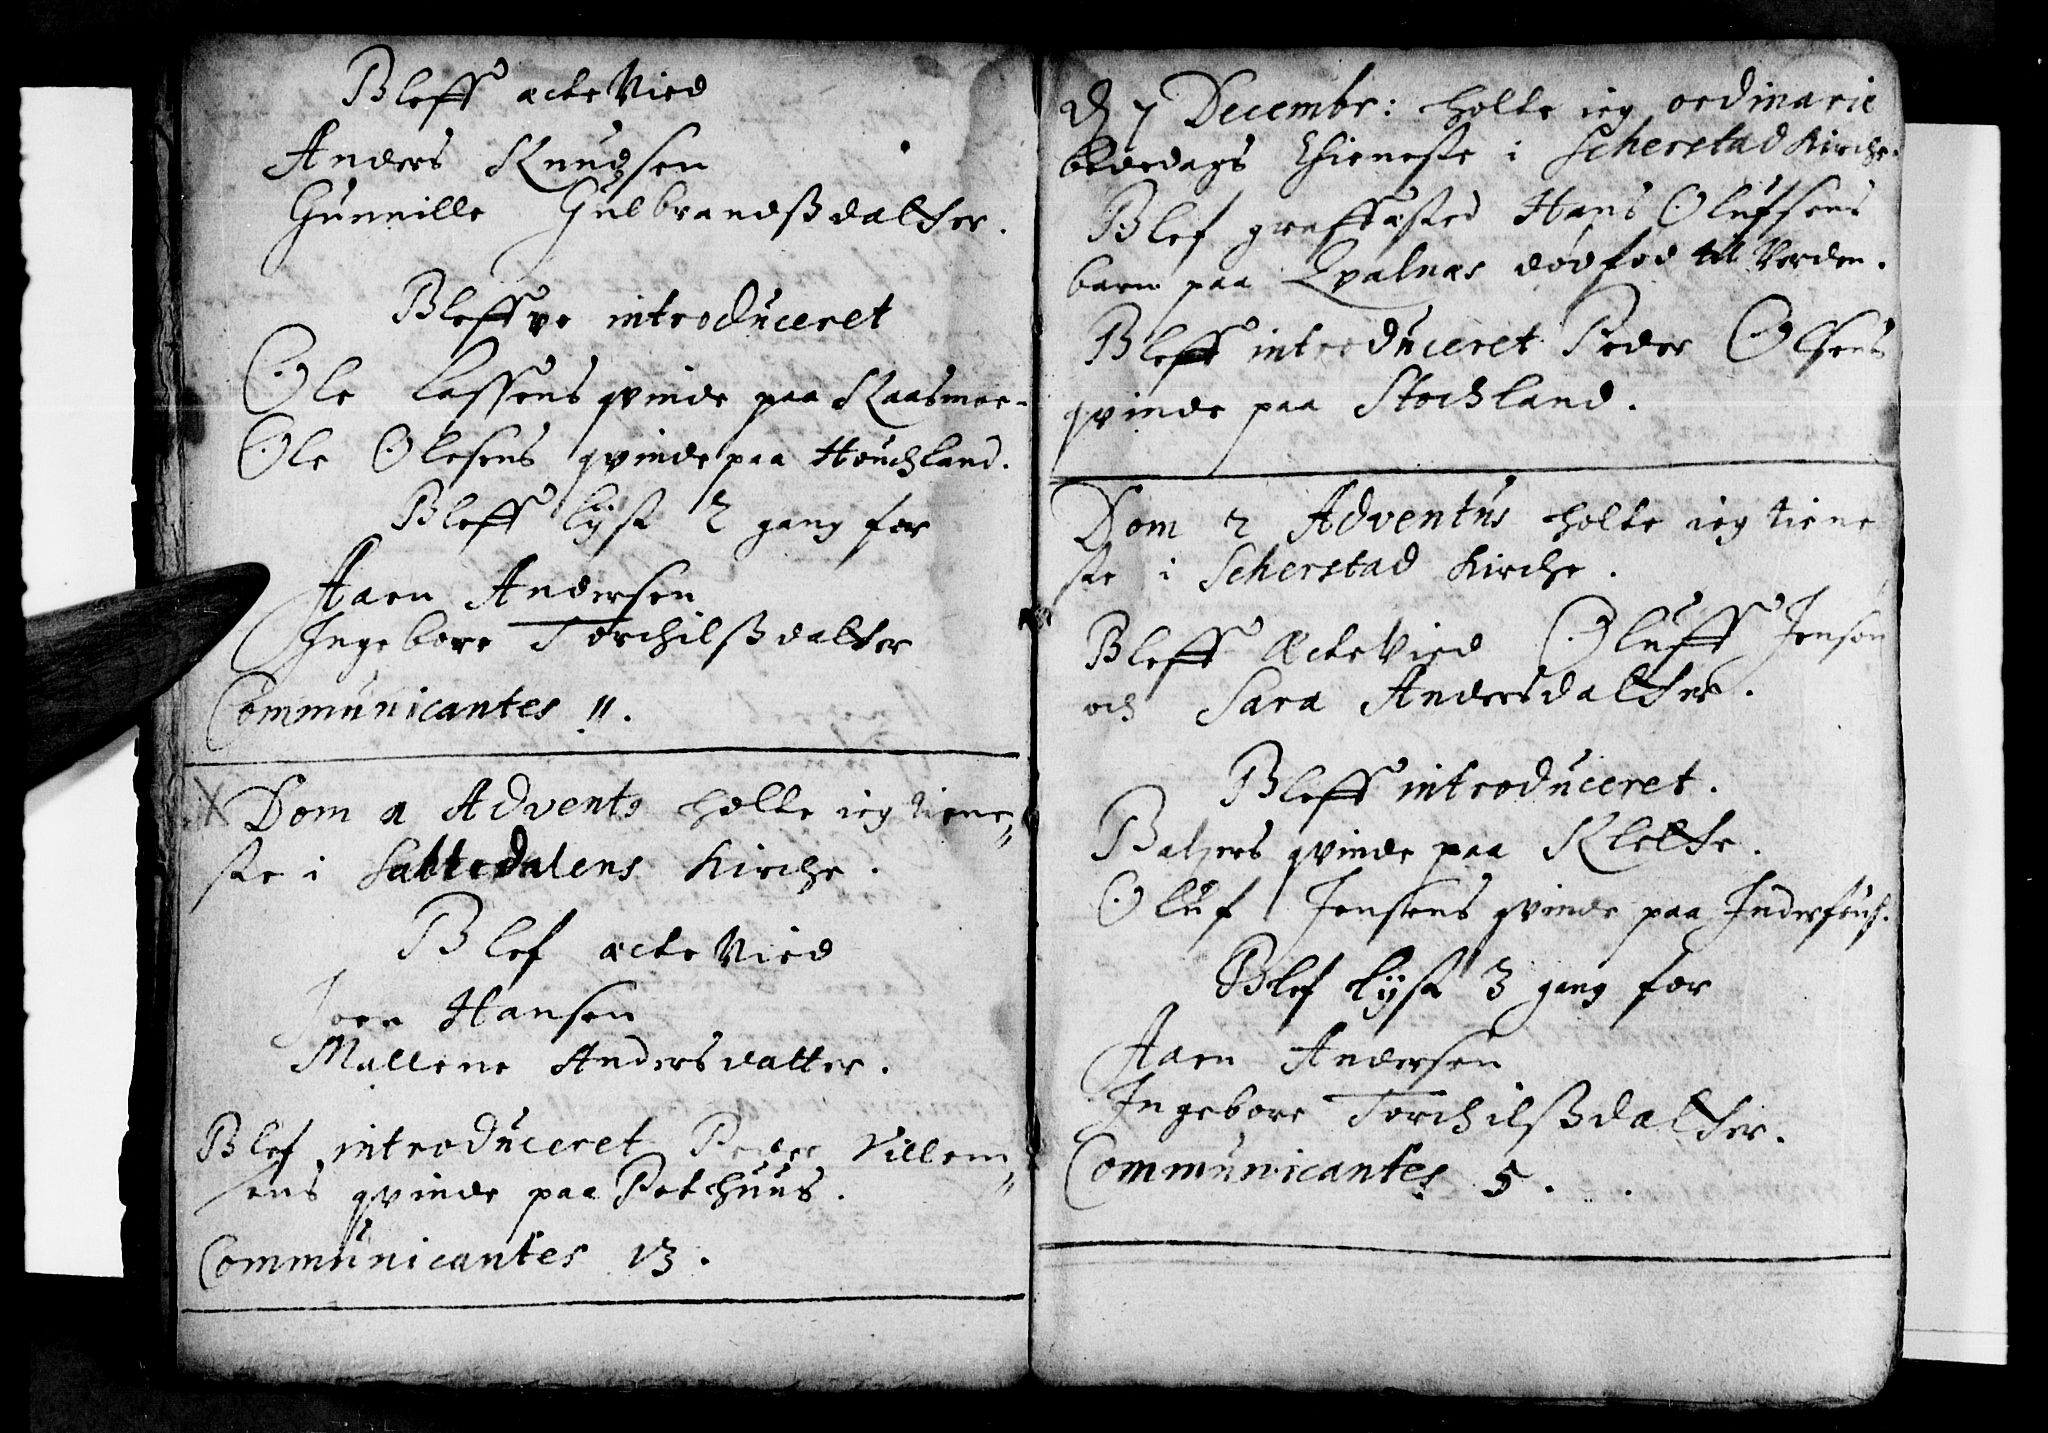 Bleff ackte Vied
Anders Knudsen
Gunnille Gulbrandßdatter.
Bleffve introduceret
Ole Lassens qvinde paa Kaasmoe.
Ole Olesens qvinde paa Houchland.
Bleff lyst 2 gang for
Aaen Andersen
Ingebore Torchilßdatter
Communicantes 11.
Dom 1 Advents holte ieg tiene„
ste i Saltedalens Kirche.
Blef ackte Vied
Joen Hansen
Mallene Andersdatter.
Blef introduceret Peder Villem„
sens qvinde paa Potchuus.
Communicantes 13.
D 7 Decembr: holte ieg ordinarie
bededags thieneste i Scherstad Kirche.
Blef graffæsted Hans Olufsens
barn paa Qvalnæs død fød til Verden.
Bleff introduceret Peder Olsens
qvinde paa Stochland.
Dom 2 Adventus holte ieg tiene
ste i Scherstad Kirche.
Bleff Æcte Vied Oluff Jenson
och Sara Andersdatter.
Bleff introduceret.
Baltzers qvinde paa Klette.
Oluf Jensens qvinde paa
Blef lyst 3 gang for
Aaen Andersen
Ingebore Torchilßdatter.
Communicantes 5.